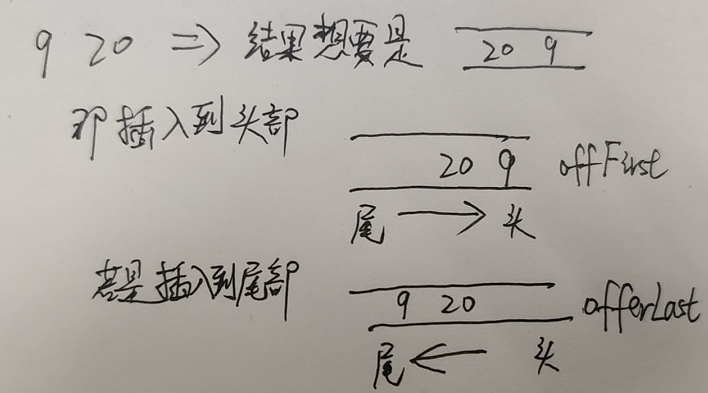 9 20 => 结果想要是 20 9
那插入到头部
20 9 offFirst
尾 → 头
若是插入到尾部
9 20 offerLast
尾 ← 头